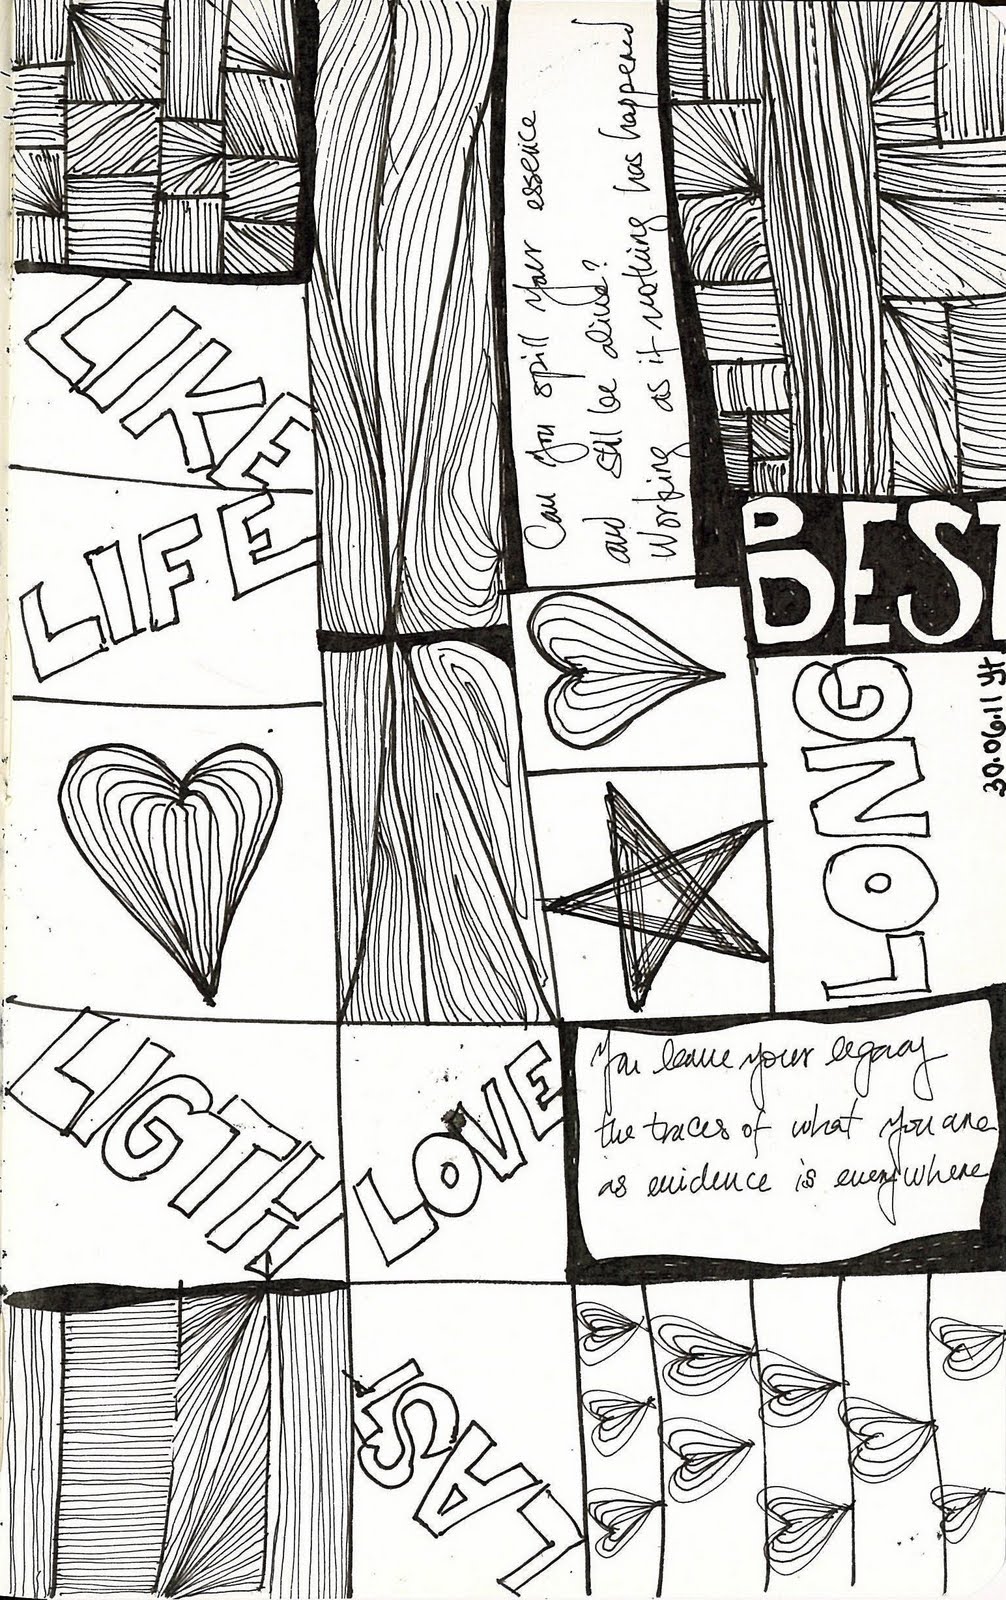 Can you spill your essence
and still be alive?
Working as if nothing has happened
LIKE
LIFE
BEST
LONG
30.06.11 yt
LIGTH
LOVE
You leave your legacy
the traces of what you are
as evidence is everywhere
LAST